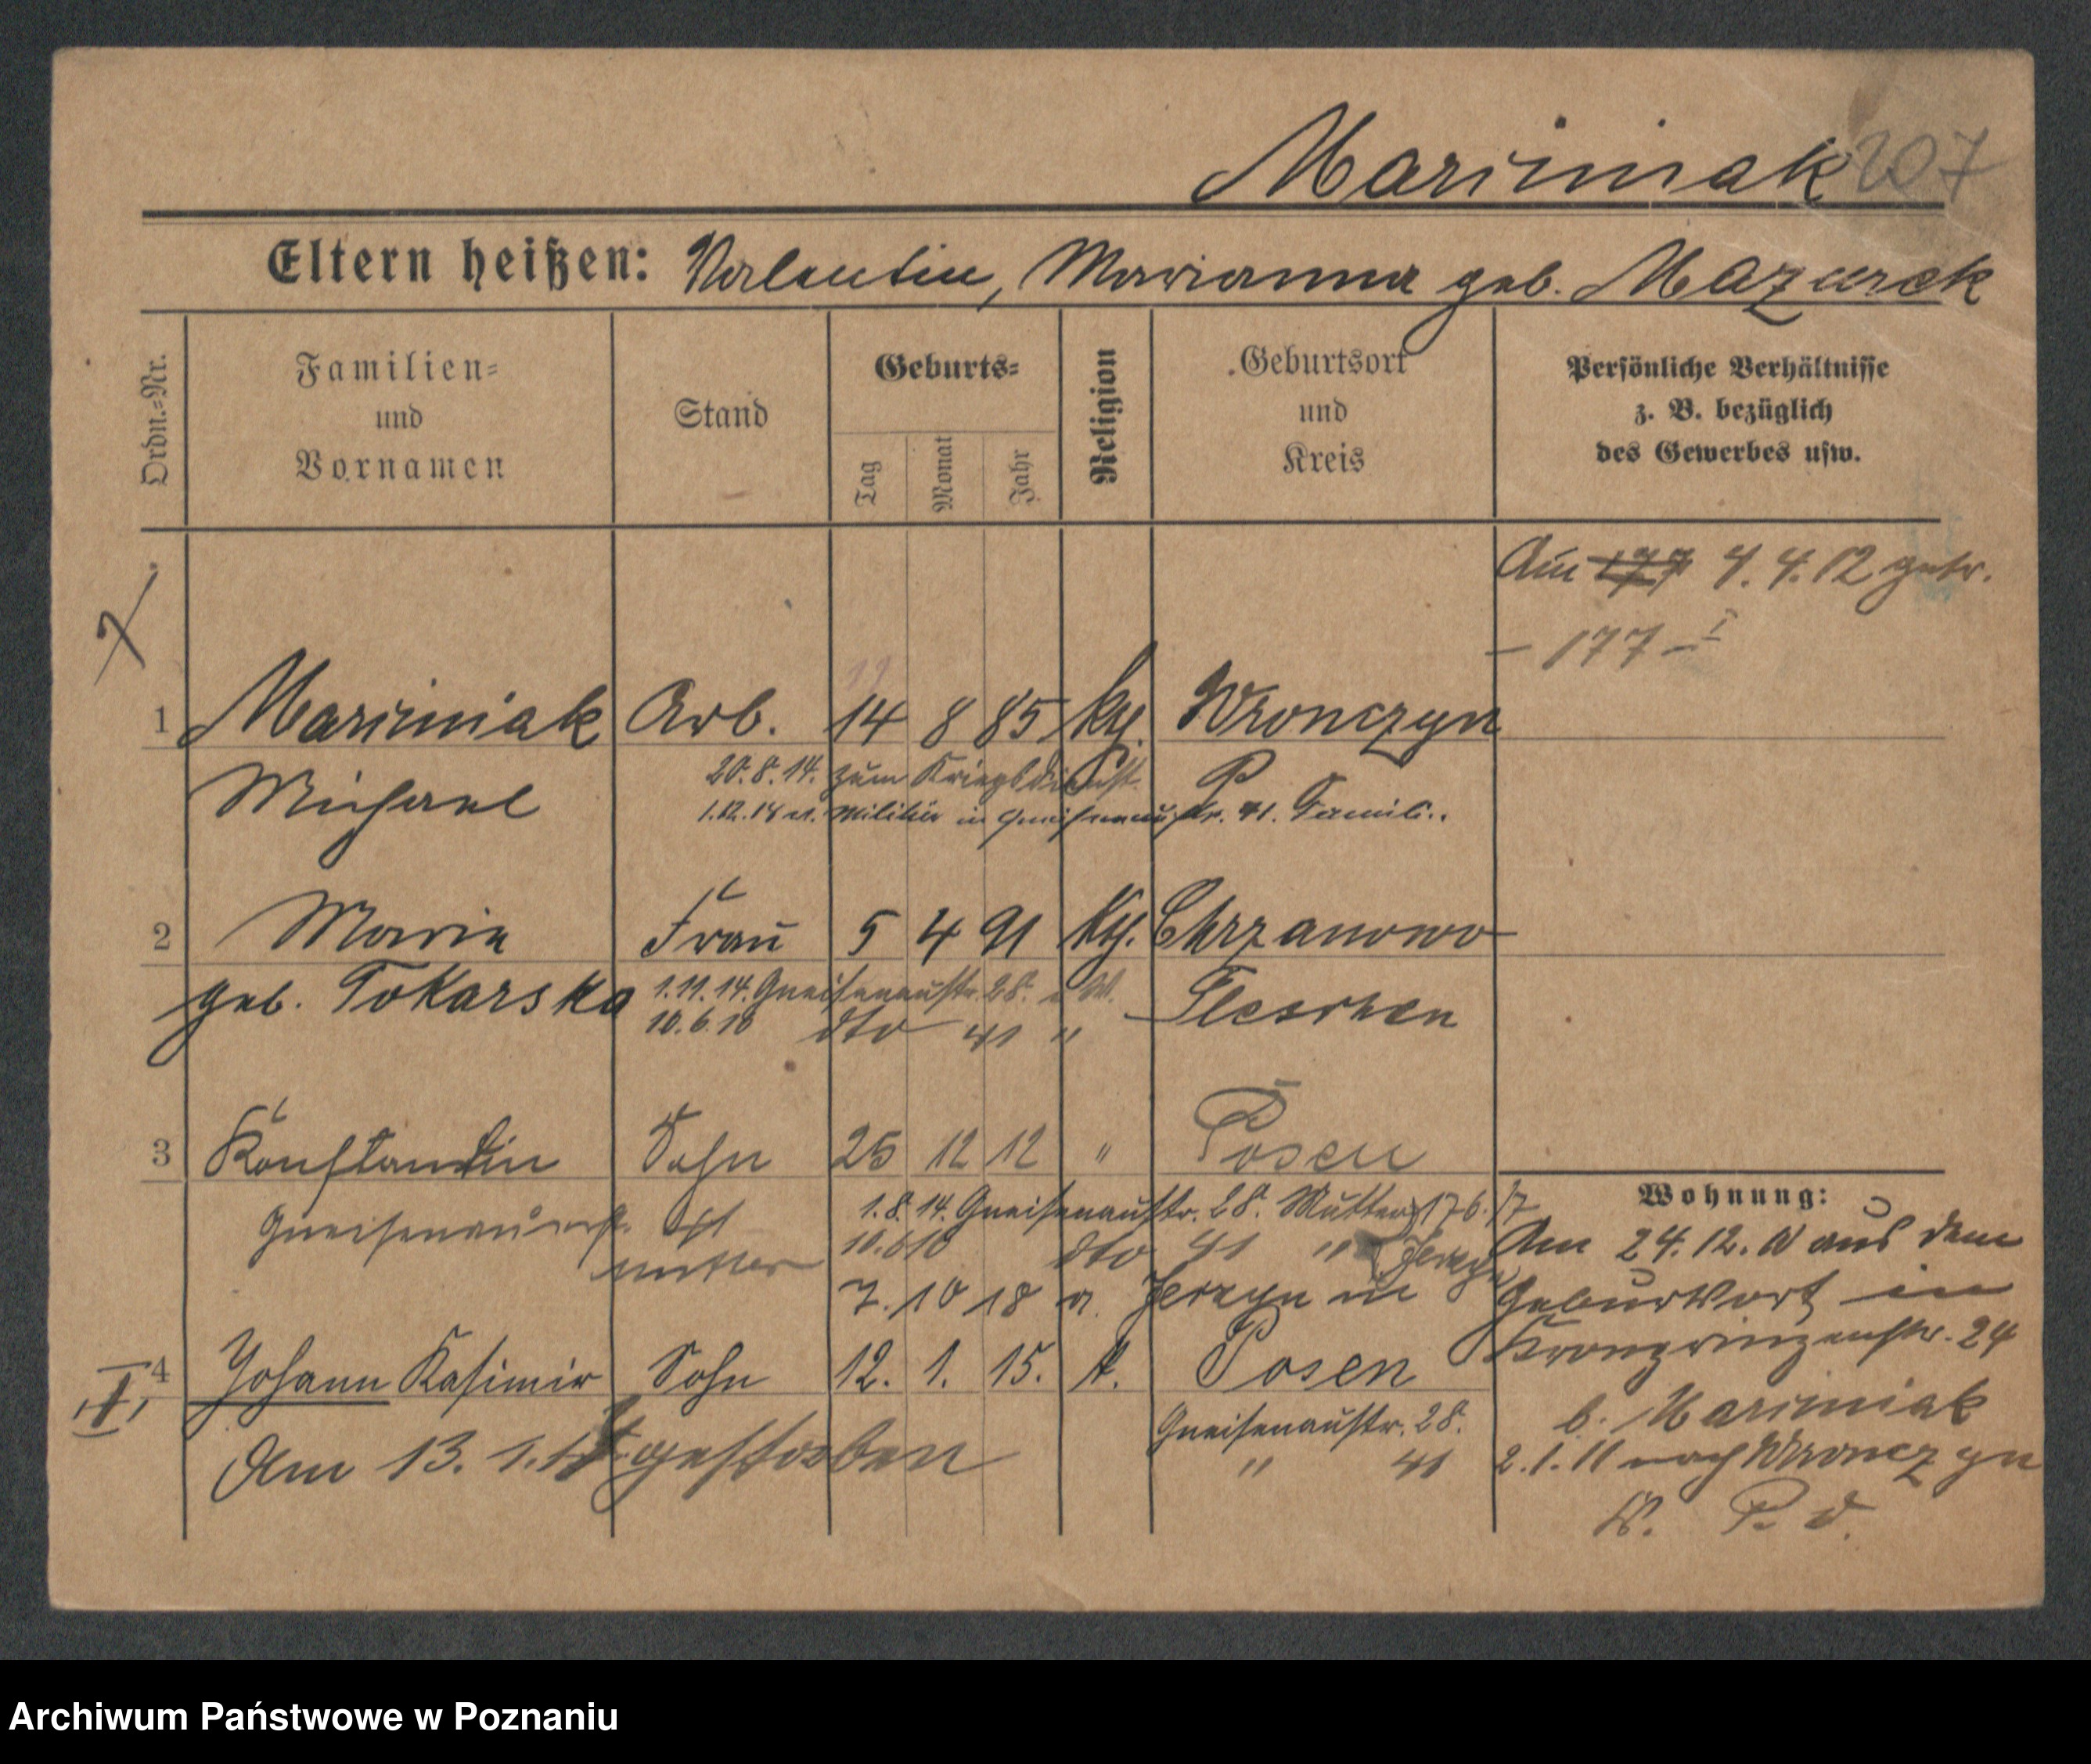 Marciniak 207
Eltern heißen: Valentin, Marianna geb. Mazurek
Ordn.-Nr.
Familien-
und
Vornamen
Stand
Geburts-
Tag
Monat
Jahr
Religion
Geburtsort
und
Kreis
Persönliche Verhältnisse
z. B. bezüglich
des Gewerbes usw.
Am 177 4. 4. 12 getr.
- 177 - I
19
1 Marciniak Arb. 14 8 85 kth. Wronczyn
Michael 20.8.14. zum Kriegsdienst P
1.12.14 Militär in Gneisenaustr. 41. Famili..
2 Maria Frau 5 4 91 kth. Chrzanowo
geb. Tokarska 1.11.14. Gneisenaustr. 28. W. Pleschen
10.6.18 dto 41 "
3 Konstantin Sohn 25 12 12 " Posen
Gneisenaustr. 1.8.14. Gneisenaustr. 28. Mutter 176.17
Mutter 10.6.18 dto 41 " Jerzyn
7. 10 18 n. Jerzyn
4 Johann Kasimir Sohn 12. 1. 15. k. Posen
I
Gneisenaustr. 28.
Am 13. 1. gestorben " 41
Wohnung:
Am 24.12.10 aus dem
Geburtsort in
Kronprinzenstr. 24
b. Marciniak
2.1.11 nach Wronczyn
K. P. d.
Archiwum Państwowe w Poznaniu